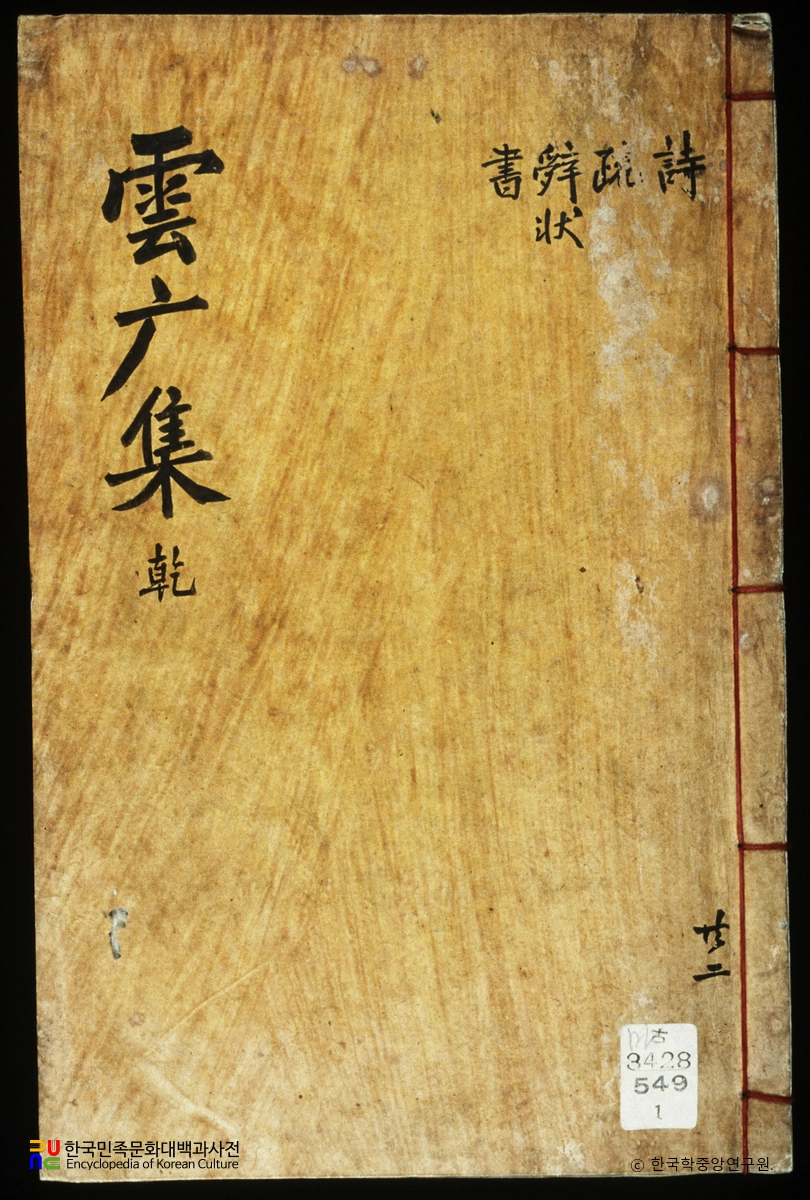 雲广集 乾
詩
疏
辭狀
書
共二
古
3428
549
1
한국민족문화대백과사전
Encyclopedia of Korean Culture
ⓒ 한국학중앙연구원